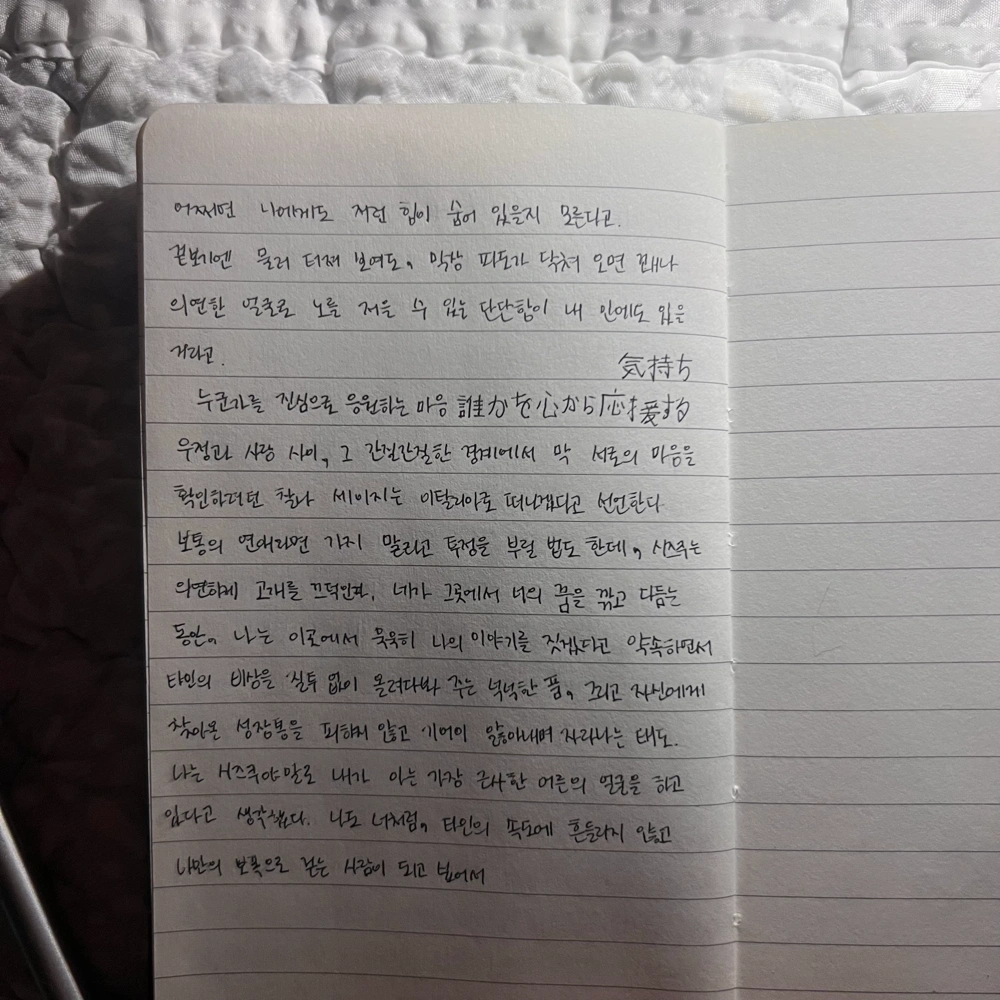 어쩌면 나에게도 저런 힘이 숨어 있을지 모른다고.
겉보기엔 물러 터져 보여도, 막상 파도가 닥쳐 오면 꽤나
의연한 얼굴로 노를 저을 수 있는 단단함이 내 안에도 있을
거라고.
気持ち
누군가를 진심으로 응원하는 마음 誰かを心から応援する
우정과 사랑 사이, 그 간질간질한 경계에서 막 서로의 마음을
확인하려던 찰나 세이지는 이탈리아로 떠나겠다고 선언한다
보통의 연애라면 가지 말라고 투정을 부릴 법도 한데, 시즈쿠는
의연하게 고개를 끄덕인다. 네가 그곳에서 너의 꿈을 깎고 다듬는
동안, 나는 이곳에서 묵묵히 나의 이야기를 짓겠다고 약속하면서
타인의 비상을 질투 없이 올려다봐 주는 넉넉한 품, 그리고 자신에게
찾아온 성장통을 피하지 않고 기어이 앓아내며 자라나는 태도.
나는 시즈쿠야말로 내가 아는 가장 근사한 어른의 얼굴을 하고
있다고 생각했다. 나도 너처럼, 타인의 속도에 흔들리지 않고
나만의 보폭으로 걷는 사람이 되고 싶어서